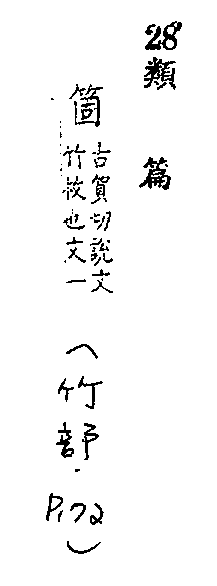 28類篇
箇古賀切說文
竹枚也文一
(竹部.P.172)